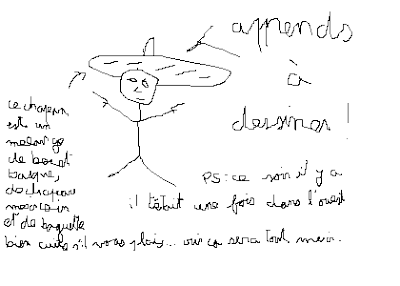 apprends
à
dessiner !
ce chapeau
est un
mélange
de beret
basque,
de chapeau
mexicain
et de baguette
bien cuite s'il vous plais... oui ça sera tout merci.
PS: ce soir il y a
il était une fois dans l'ouest